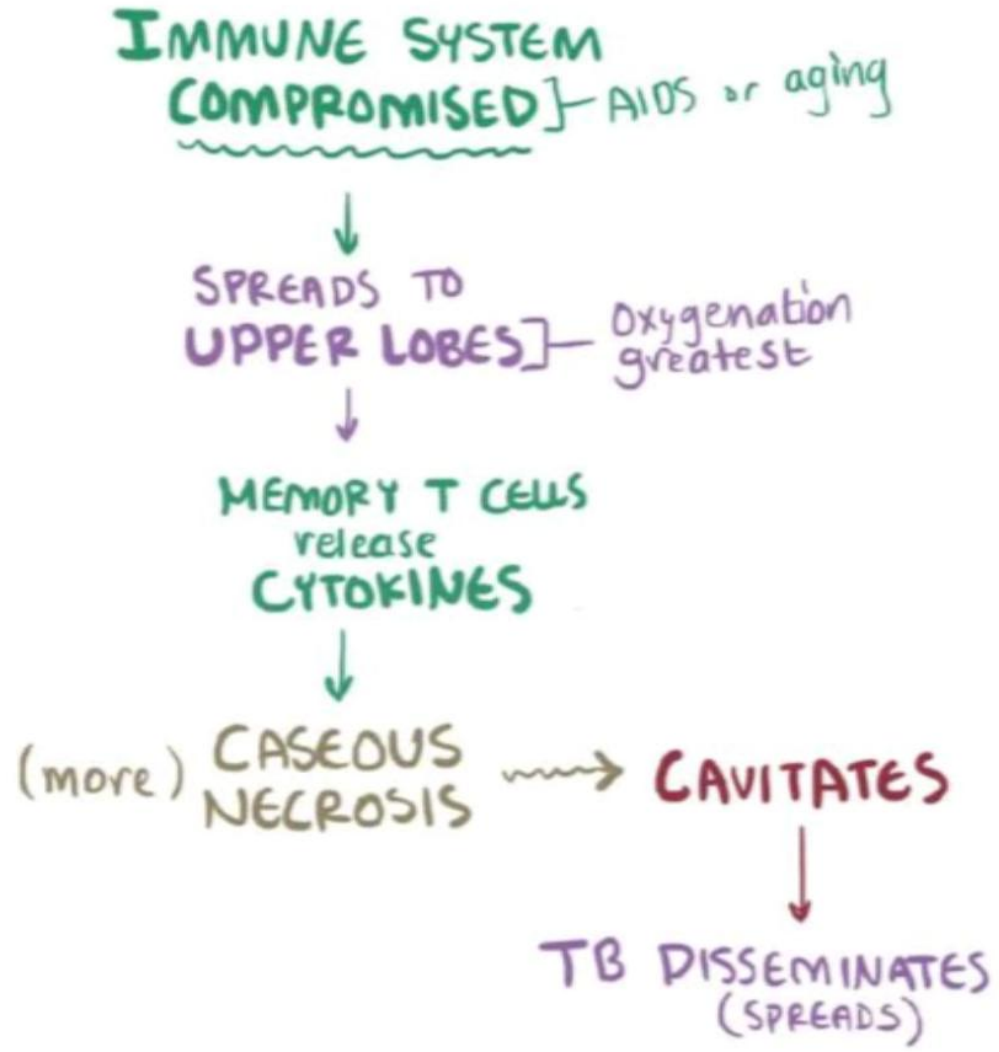 IMMUNE SYSTEM
COMPROMISED]- AIDS or aging
SPREADS TO
UPPER LOBES]- Oxygenation
greatest
MEMORY T CELLS
release
CYTOKINES
(more) CASEOUS
NECROSIS
CAVITATES
TB DISSEMINATES
(SPREADS)